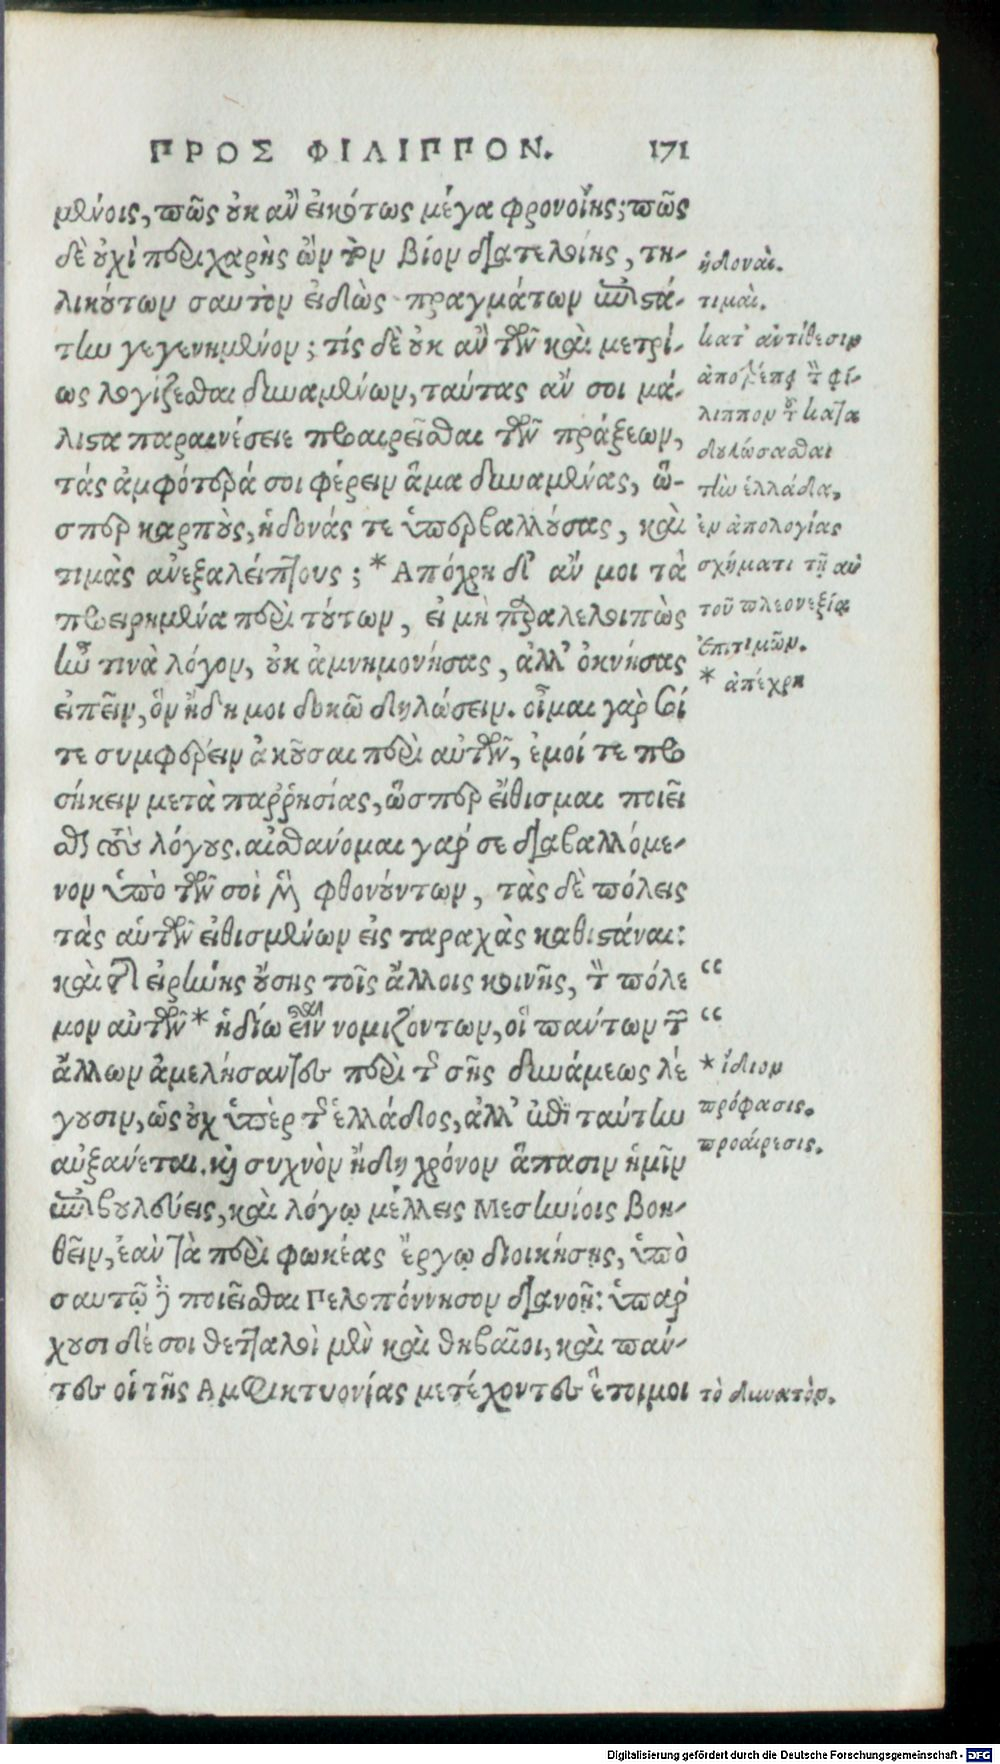 ΠΡΟΣ ΦΙΛΙΠΠΟΝ. 171
μένοις, πῶς οὐκ ἂν εἰκότως μέγα φρονοίης; πῶς
δὲ οὐχὶ περιχαρὴς ὢν τὸν βίον διατελοίης, τη-
λικούτων σαυτὸν εἰδὼς πραγμάτων ἐπιστά-
την γεγενημένον; τίς δὲ οὐκ ἂν τῶν καὶ μετρί-
ως λογίζεσθαι δυναμένων, ταύτας ἄν σοι μά-
λιστα παραινέσειε προαιρεῖσθαι τῶν πράξεων,
τάς ἀμφότερά σοι φέρειν ἅμα δυναμένας, ὥ-
σπερ καρποὺς, ἡδονάς τε ὑπερβαλλούσας, καὶ
τιμὰς ἀνεξαλείπτους; * Ἀπόχρη δ' ἄν μοι τὰ
προειρημένα περὶ τούτων, εἰ μὴ παραλελοιπὼς
ἦν τινὰ λόγον, οὐκ ἀμνημονήσας, ἀλλ' ὀκνήσας
εἰπεῖν, ὃν ἤδη μοι δοκῶ δηλώσειν. οἶμαι γὰρ σοί
τε συμφέρειν ἀκοῦσαι περὶ αὐτῶν, ἐμοί τε προ
σήκειν μετὰ παῤῥησίας, ὥσπερ εἴθισμαι ποιεῖ
σθαι τοὺς λόγους. αἰσθάνομαι γάρ σε διαβαλλόμε-
νον ὑπὸ τῶν σοὶ μὲν φθονούντων, τὰς δὲ πόλεις
τὰς αὑτῶν εἰθισμένων εἰς ταραχὰς καθιστάναι:
καὶ τὴν εἰρήνης οὔσης τοῖς ἄλλοις κοινῆς, τὸν πόλε “
μον αὐτῶν * ἡδίω εἶναι νομιζόντων, οἳ πάντων τῶν “
ἄλλων ἀμελήσαντες περὶ τῆς σῆς δυνάμεως λέ
γουσιν, ὡς οὐχ ὑπὲρ τῆς ἑλλάδος, ἀλλ' ἐπὶ ταύτην
αὐξάνεται. καὶ συχνὸν ἤδη χρόνον ἅπασιν ἡμῖν
ἐπιβουλεύεις, καὶ λόγῳ μέλλεις Μεσηνίοις βοη-
θεῖν, ἐὰν τὰ περὶ φωκέας ἔργῳ διοικήσῃς, ὑπὸ
σαυτῷ δὲ ποιεῖσθαι Πελοπόννησον διανοῇ: ὑπάρ
χουσι δέ σοι θετταλοὶ μὲν καὶ θηβαῖοι, καὶ πάν-
τες οἱ τῆς Ἀμφικτυονίας μετέχοντες ἕτοιμοι
ἡδοναὶ.
τιμαὶ.
κατ' ἀντίθεσιν
ἀποτρέπει τὸν φί-
λιππον τοῦ κατα
δουλώσασθαι
τὴν ἑλλάδα,
ἐν ἀπολογίας
σχήματι τῇ αὐ
τοῦ πλεονεξίᾳ
ἐπιτιμῶν.
* ἀπέχρη
* ἴδιον
πρόφασις.
προαίρεσις.
τὸ δυνατὸν.
Digitalisierung gefördert durch die Deutsche Forschungsgemeinschaft - DFG